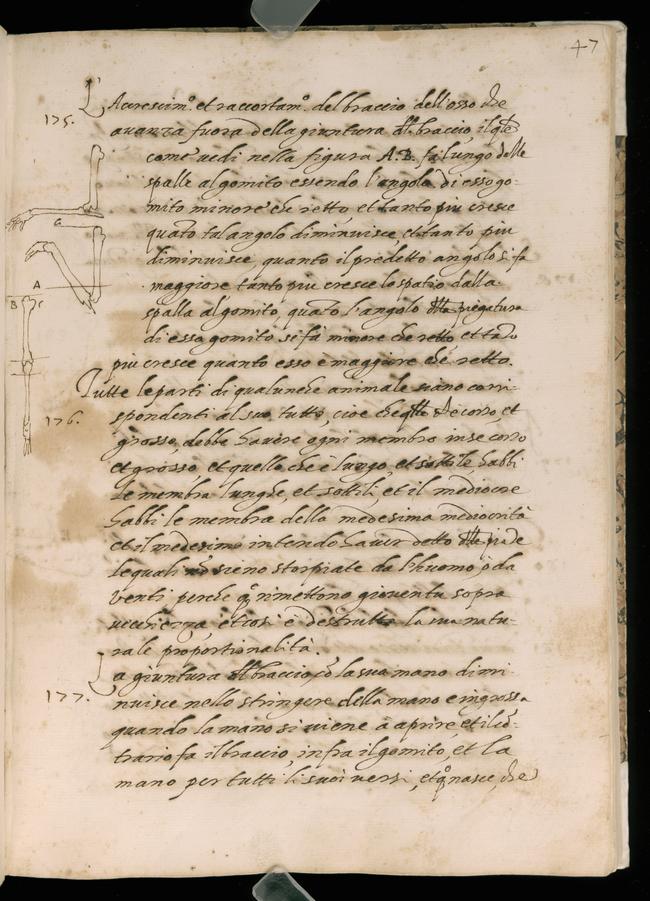 47
L'Accrescim.º et raccortam.º del braccio dell'osso che
175.
avanza fuora della giuntura del braccio, il qle
come vedi nella figura A.B. fa lungo dalle
spalle al gomito essendo l'angolo di esso go-
mito minore che retto, et tanto piu cresce
quãto tal angolo diminuisce et tanto piu
diminuisce, quanto il predetto angolo si fa
maggiore tanto piu cresce lo spatio dalla
spalla al gomito, quãto l'angolo della piegatura
di esso gomito si fà minore che retto et tãto
piu cresce quanto esso è maggiore che retto.
Tutte le parti di qualunche animale siano corri-
spondenti al suo tutto, cioe che qllo che è corto, et
176.
grosso, debbe havere ogni membro in se corto
et grosso, et quello che è lungo, et sottile habbi
le membra lunghe, et sottili, et il mediocre
habbi le membra della medesima mediocrità
et il medesimo intendo haver detto delle piãte
le quali nõ sieno storpiate da l'huomo, ò da
venti perche qste rimettono gioventu sopra
vecchiezza, et cosi è destrutta la sua natu-
rale proportionalità.
La giuntura del braccio cõ la sua mano dimi-
177.
nuisce nello stringere della mano e ingrossa
quando la mano si viene a aprire, et il cõ-
trario fa il braccio, infra il gomito, et la
mano per tutti li suoi versi, et qº nasce, che
C
A
B C